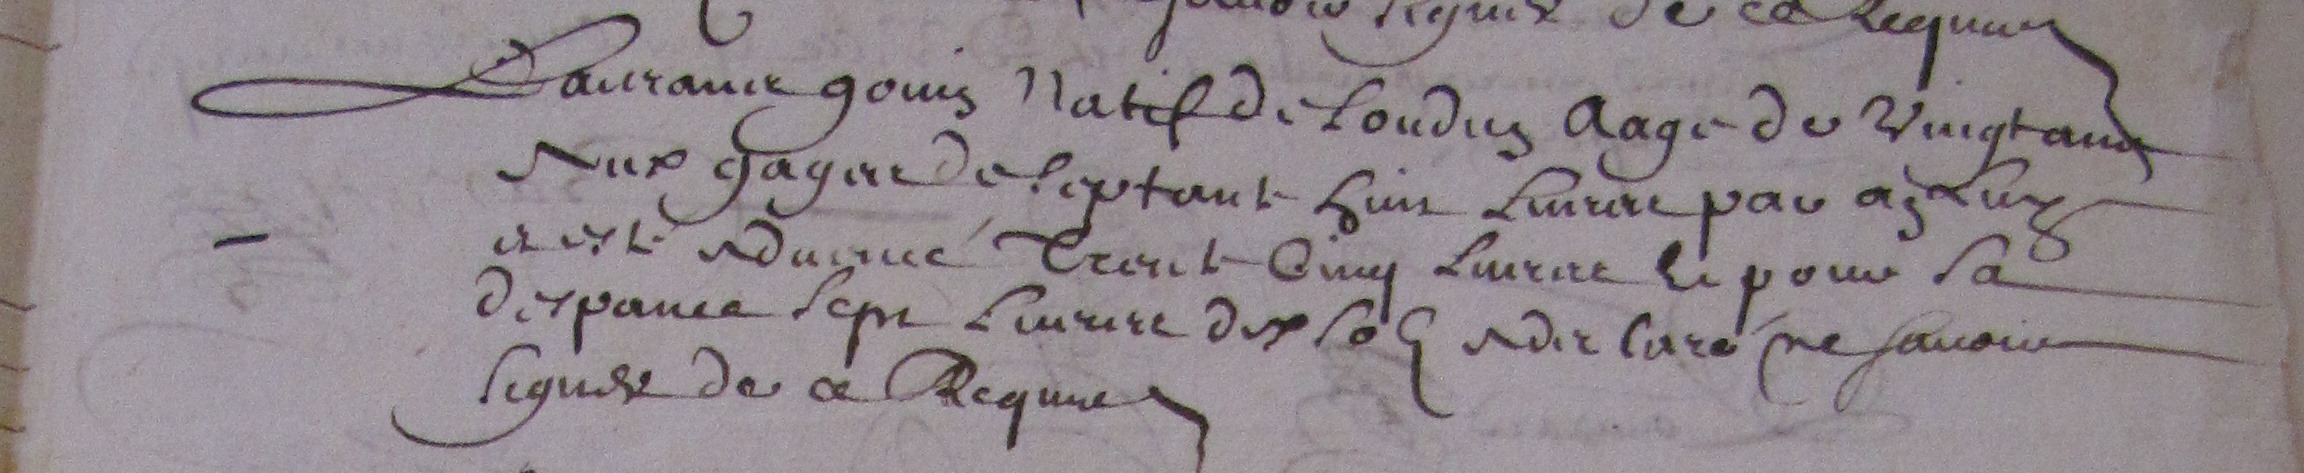 signer de ce Requis
Laurance gouin Natif de Loudun Aage de Vingt ans
Aux gages de septante huit Livres par an Luy
a esté advancé Trente Cinq Livres Et pour sa
despance sept Livres dix sols A declaré ne savoir
signer de ce Requis